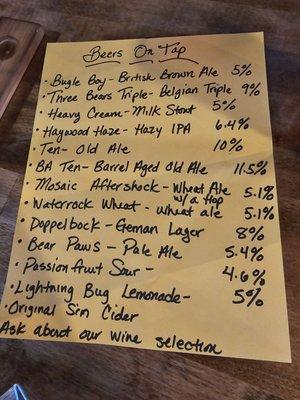 Beers On Tap
• Bugle Boy - British Brown Ale 5%
• Three Bears Triple - Belgian Triple 9%
• Heavy Cream - Milk Stout 5%
• Haywood Haze - Hazy IPA 6.4%
• Ten - Old Ale 10%
• BA Ten - Barrel Aged Old Ale 11.5%
• Mosaic Aftershock - Wheat Ale 5.1%
w/ a Hop
• Waterrock Wheat - Wheat ale 5.1%
• Doppelbock - Geman Lager 8%
• Bear Paws - Pale Ale 5.4%
• Passionfruit Sour - 4.6%
• Lightning Bug Lemonade - 5%
• Original Sin Cider
Ask about our wine selection